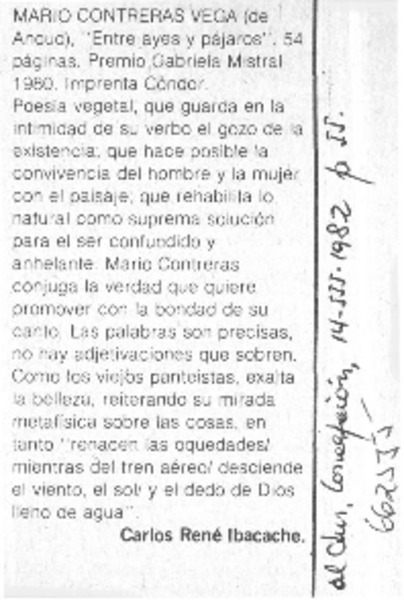 MARIO CONTRERAS VEGA (de
Ancud), "Entre ayes y pájaros". 54
páginas. Premio Gabriela Mistral
1980. Imprenta Cóndor.
Poesía vegetal, que guarda en la
intimidad de su verbo el gozo de la
existencia; que hace posible la
convivencia del hombre y la mujer
con el paisaje; que rehabilita lo
natural como suprema solución
para el ser confundido y
anhelante. Mario Contreras
conjuga la verdad que quiere
promover con la bondad de su
canto. Las palabras son precisas,
no hay adjetivaciones que sobren.
Como los viejos panteistas, exalta
la belleza, reiterando su mirada
metafísica sobre las cosas, en
tanto "renacen las oquedades/
mientras del tren aéreo/ desciende
el viento, el sol/ y el dedo de Dios
lleno de agua".
Carlos René Ibacache.
Concepción, 14-III-1982 p